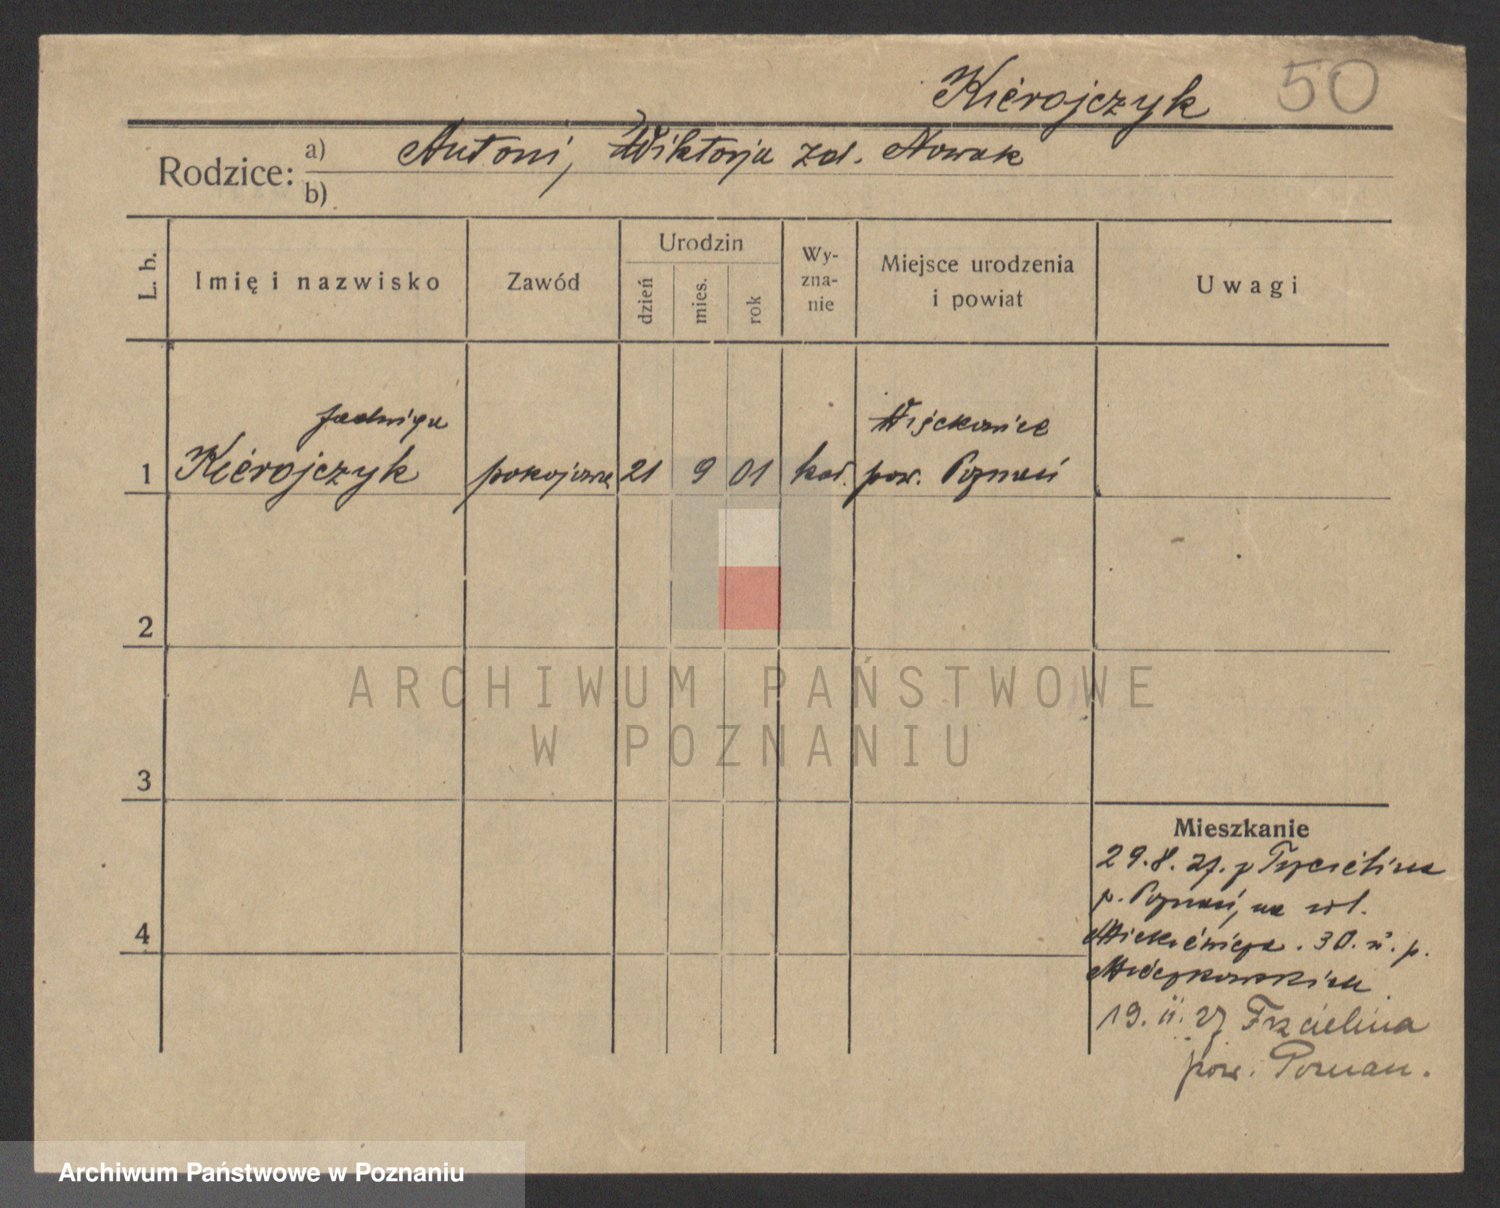 Kierojczyk 50
Rodzice: a) Antoni, Wiktorja zd. Nowak
b)
L. b. Imię i nazwisko Zawód Urodzin dzień mies. rok Wy-zna-nie Miejsce urodzenia i powiat Uwagi
Jadwiga Więckowice
1 Kierojczyk pokojowa 21 9 01 kat. pow. Poznań
2
ARCHIWUM PAŃSTWOWE
W POZNANIU
3
Mieszkanie
29.8.27. z Trzcielina
p. Poznań, na ul.
4
Mickiewicza. 30. II. p.
19. II. 27 Trzcielina
pow. Poznan.
Archiwum Państwowe w Poznaniu